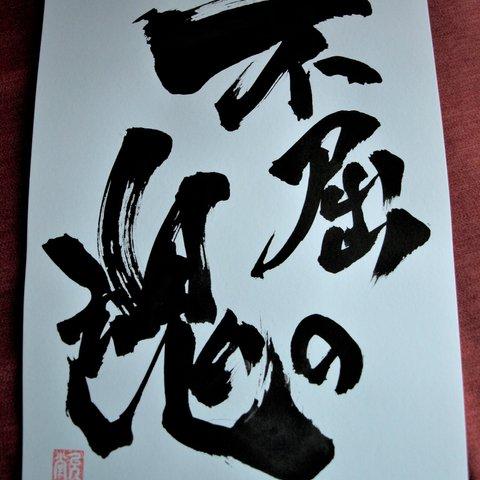 不屈の
魂